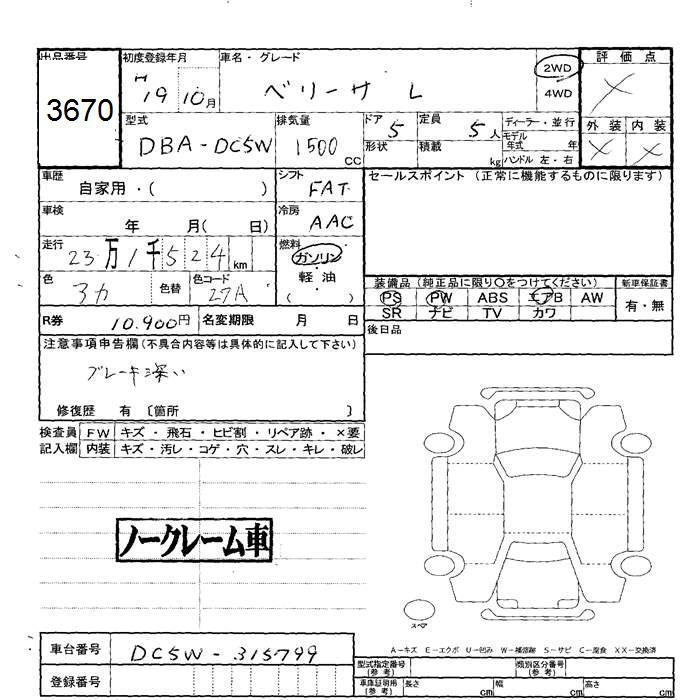 出品番号
3670
初度登録年月
H 19 10月
車名・グレード
ベリーサ L
2WD
4WD
評価点
×
外装 内装
× ×
型式
DBA-DC5W
排気量
1500 CC
ドア 5
形状
定員 5人
積載 kg
ディーラー・並行
モデル年式 年
ハンドル 左・右
車歴
自家用・( )
シフト
FAT
セールスポイント (正常に機能するものに限ります)
車検
年 月( 日)
冷房
AAC
走行
23万1千524km
燃料
ガソリン
軽・油
( )
色
3カ
色替
色コード
27A
装備品 (純正品に限り○をつけてください)
新車保証書
PS PW ABS エアB AW
SR ナビ TV カワ
有・無
R券 10.900円
名変期限 月 日
後日品
注意事項申告欄(不具合内容等は具体的に記入して下さい)
ブレーキ深い
修復歴 有 〔箇所 〕
検査員 FW キズ・飛石・ヒビ割・リペア跡・×要
記入欄 内装 キズ・汚レ・コゲ・穴・スレ・キレ・破レ
ノークレーム車
スペア
A-キズ E-エクボ U-凹み W-補修跡 S-サビ C-腐食 XX-交換済
車台番号 DC5W-315799
登録番号
型式指定番号(参考)
類別区分番号(参考)
車庫証明用(参考) 長さ cm 幅 cm 高さ cm